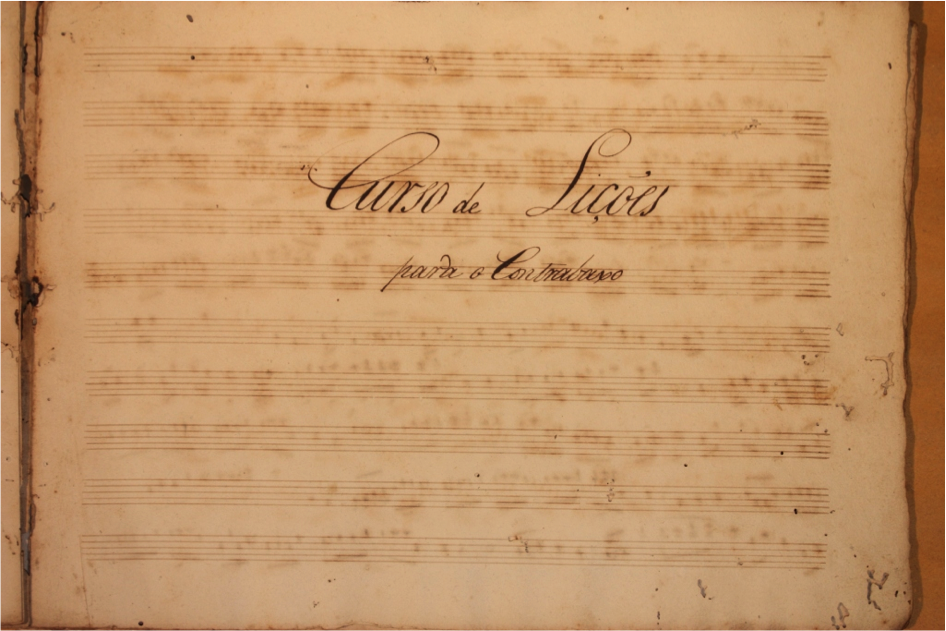 Curso de Lições
para o Contrabaxo